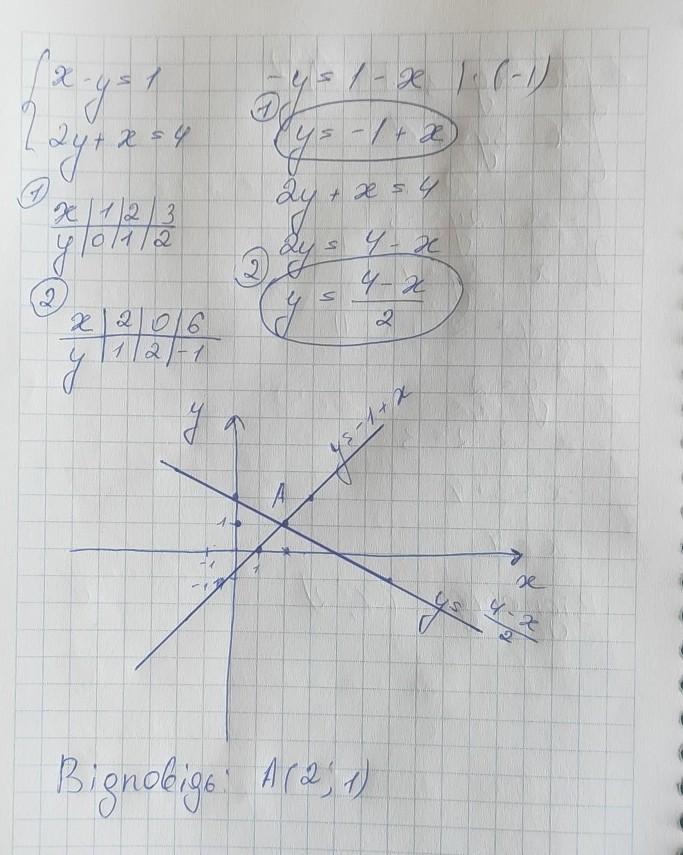 x - y = 1
2y + x = 4
-y = 1 - x | · (-1)
① y = -1 + x
2y + x = 4
2y = 4 - x
② y = (4 - x)/2
①
x | 1 | 2 | 3
y | 0 | 1 | 2
②
x | 2 | 0 | 6
y | 1 | 2 | -1
y
y = -1 + x
A
1
-1
1
-1
x
y = (4 - x)/2
Відповідь: A(2; 1)